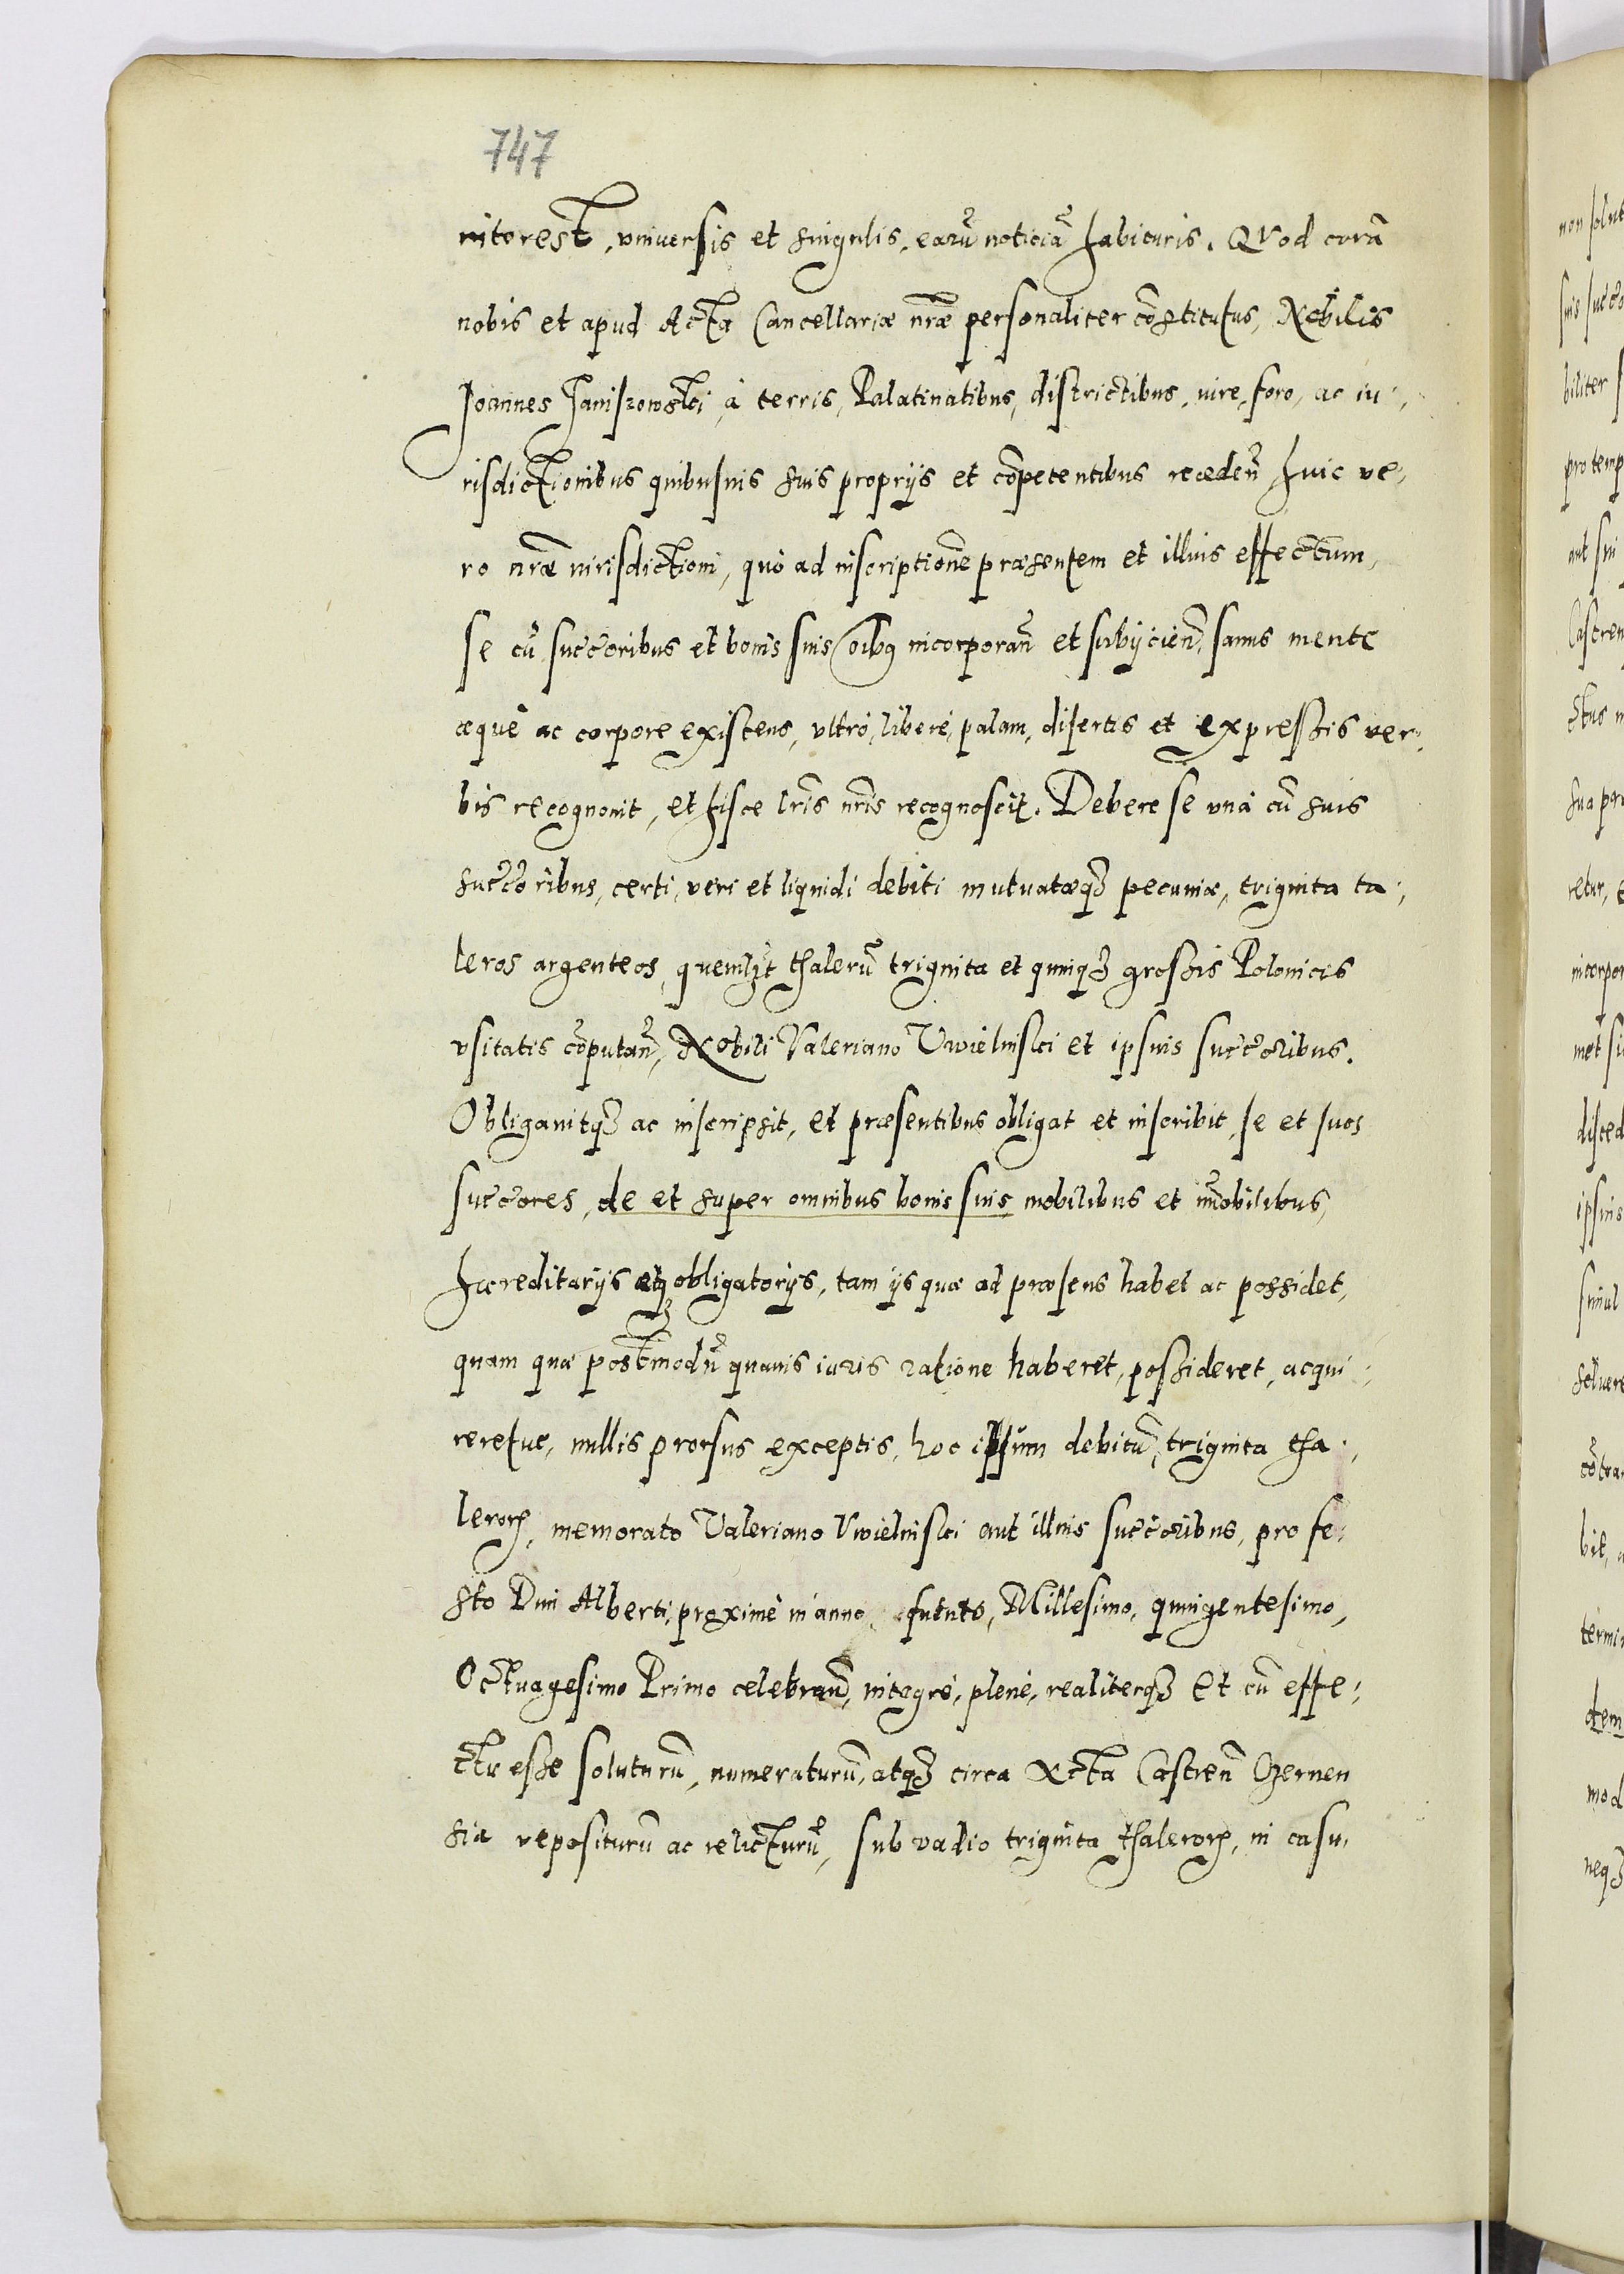 747
interest, vniuersis et singulis, earũ noticiã habituris. QVod corã
nobis et apud Acta Cancellariæ nrãe personaliter cõstitutus, Nobilis
Joannes Janiszowski, à terris, Palatinatibus, districtibus, iure, foro, ac iu,
risdictionibus quibusuis suis proprijs et cõpetentibus recedeñ huic ve,
ro nrãe iurisdictioni, quò ad inscriptionẽ præsentem et illius effectum,
se cũ succoribus et bonis suis oibq incorporañ et subijcieñ, sanus mente
æquè ac corpore existens, vltrò, liberè, palam, disertis et expressis ver,
bis recognouit, et hisce lris nris recognoscit. Debere se vnà cũ suis
succoribus, certi, veri et liquidi debiti mutuatæqꝫ pecuniæ, triginta ta,
leros argenteos, quemlꝫt thalerũ triginta et quinqꝫ grossis Polonicis
vsitatis cõputañ, Nobili Valeriano Vwielinski et ipsius succoribus.
Obligauitqꝫ ac inscripsit, et præsentibus obligat et inscribit, se et suos
succores, de et super omnibus bonis suis, mobilibus et im̃obilibus,
hæreditarijs etqꝫ obligatorijs, tam ijs quæ ad præsens habet ac possidet,
quam quæ postmodũ quauis iuris ratione haberet, possideret, acqui,
reretue, nullis prorsus exceptis, hoc ipsum debitũ, triginta tha,
lerorꝝ, memorato Valeriano Vwielinski aut illius succoribus, pro fe,
sto Diui Alberti, proximè in anno futuro, Millesimo, quingentesimo,
Octuagesimo Primo celebrañ, integrè, plenè, realiterqꝫ et cũ effe,
ctu esse soluturũ, numeraturũ, atqꝫ circa Acta Castreñ Czernen
sia repositurũ ac relicturũ, sub vadio triginta thalerorꝝ, in casu,